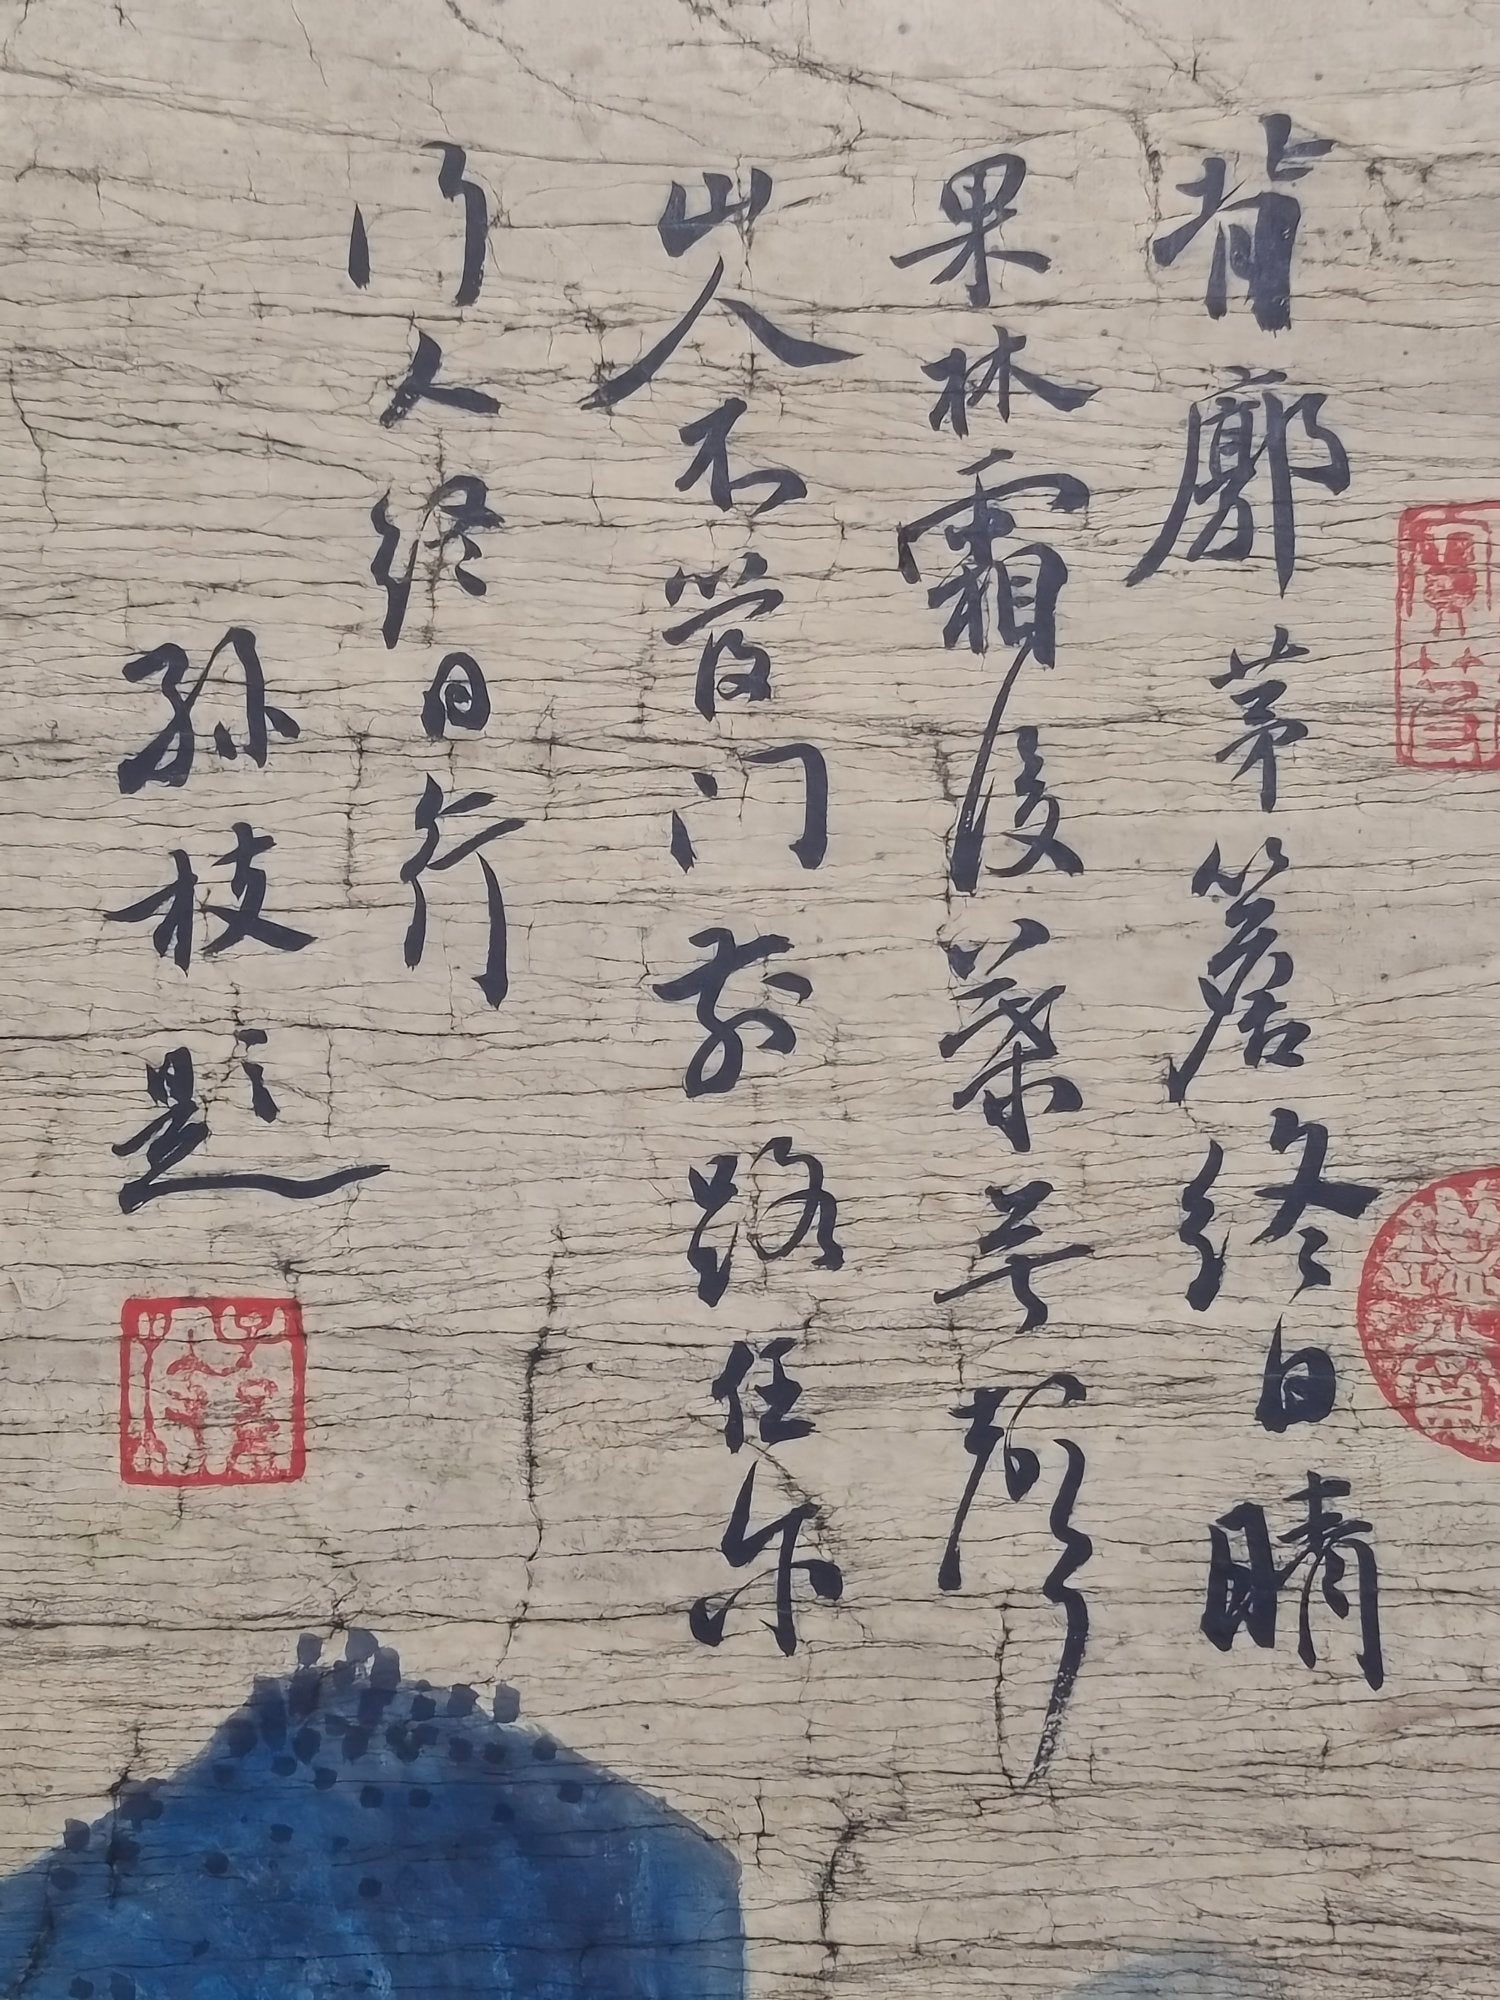 背廓茅簷終日晴
果林霜後葉無聲
山人不管门前路任尔
行人終日行
孙枝題